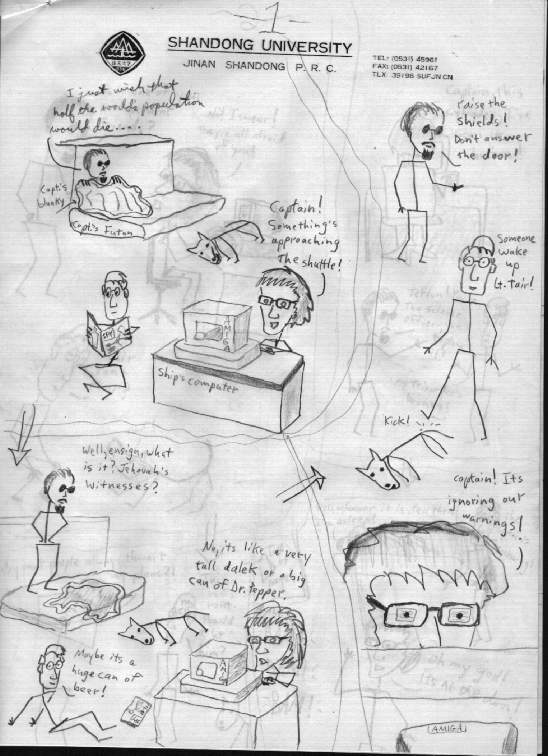 1
SHANDONG UNIVERSITY
JINAN SHANDONG P. R. C.
TEL: (0531) 45961
FAX: (0531) 42167
TLX: 39198 SUFJN CN
I just wish that
half the world's population
would die....
Capt.'s
blanky
Capt.'s Futon
Captain!
Something's
approaching
the shuttle!
SPY
AMIGA
Ship's computer
Well, ensign, what
is it? Jehovah's
Witnesses?
No, its like a very
tall dalek or a big
can of Dr. Pepper.
AMIGA
Maybe its a
huge can of
beer!
raise the
shields!
Don't answer
the door!
Someone
wake
up
Lt. Tair!
Kick!
captain! Its
ignoring our
warnings!
AMIGA